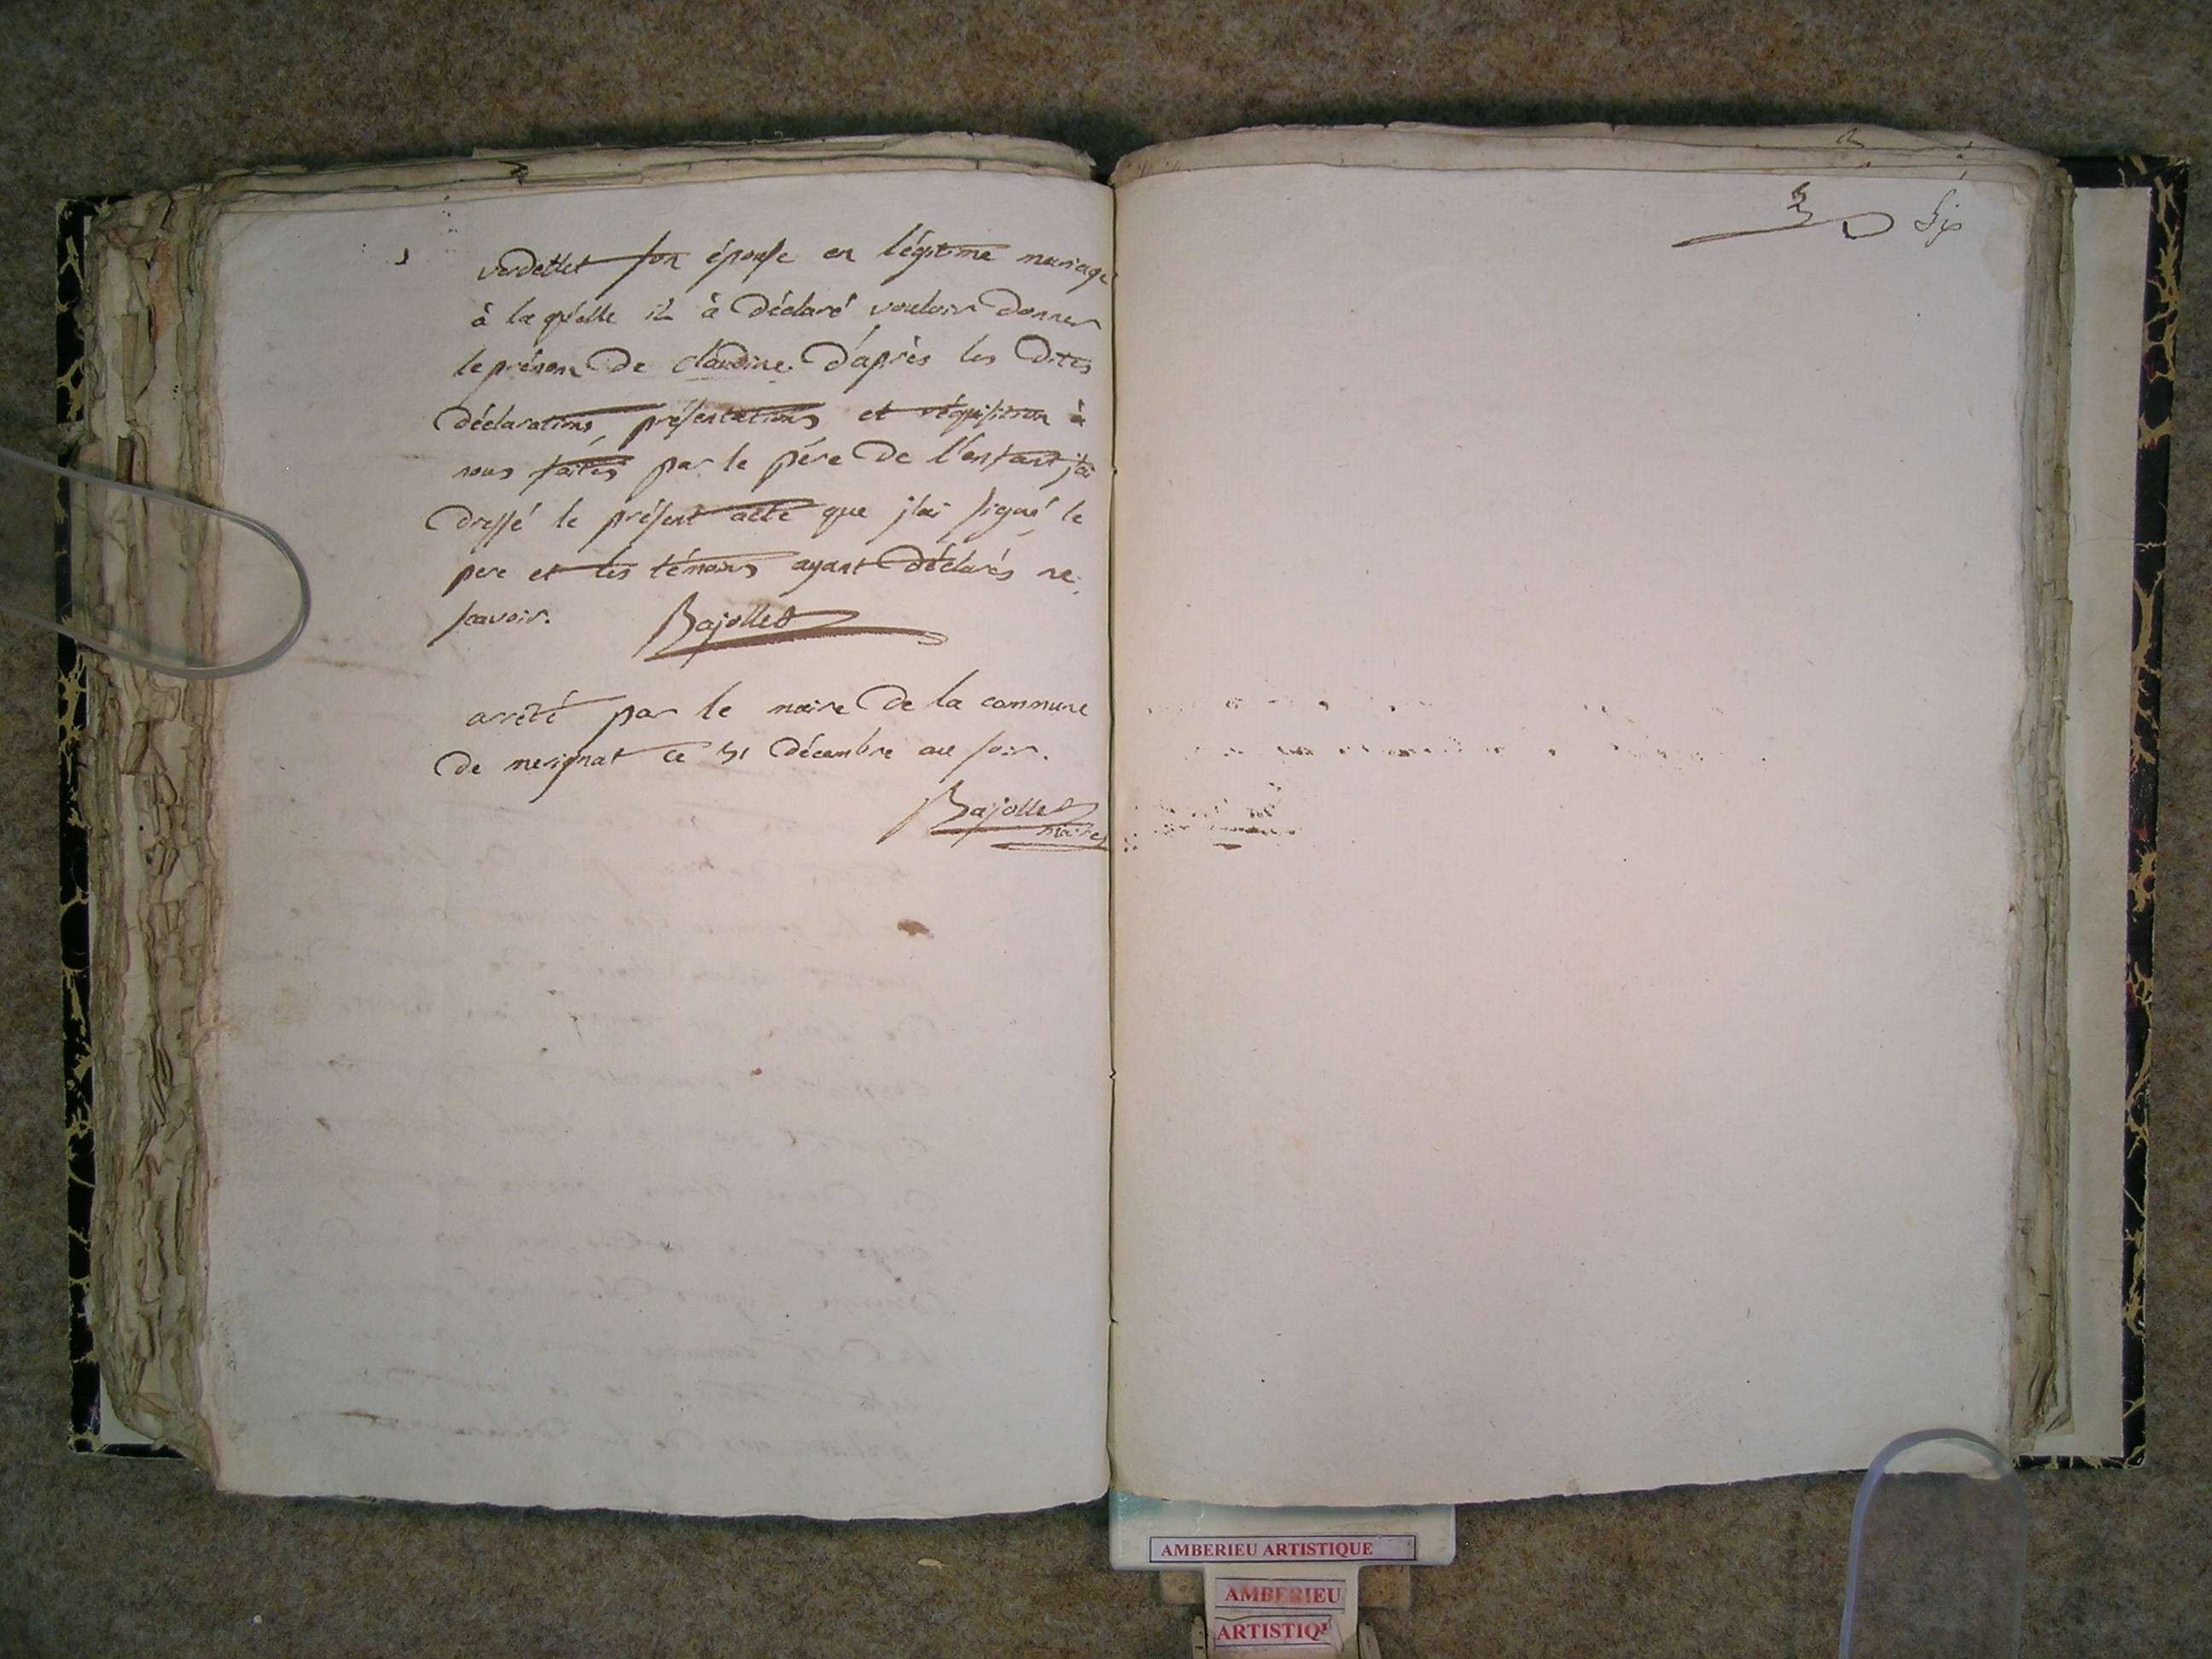 verdettet son épouse en légitime mariage
à la quélle il à déclaré vouloir donner
le prénom de claudine. d'aprés les dites
déclarations, présentations et réquisition à
nous faites par le pére de l'enfant j'ai
dressé le présent acte que j'ai signé le
pere et les témoins ayant déclarés ne
scavoir. Bajollet
arrêté par le maire de la commune
de merignat ce 31 décembre au soir.
Bajollet
maire
Six
AMBERIEU ARTISTIQUE
AMBERIEU
ARTISTIQU